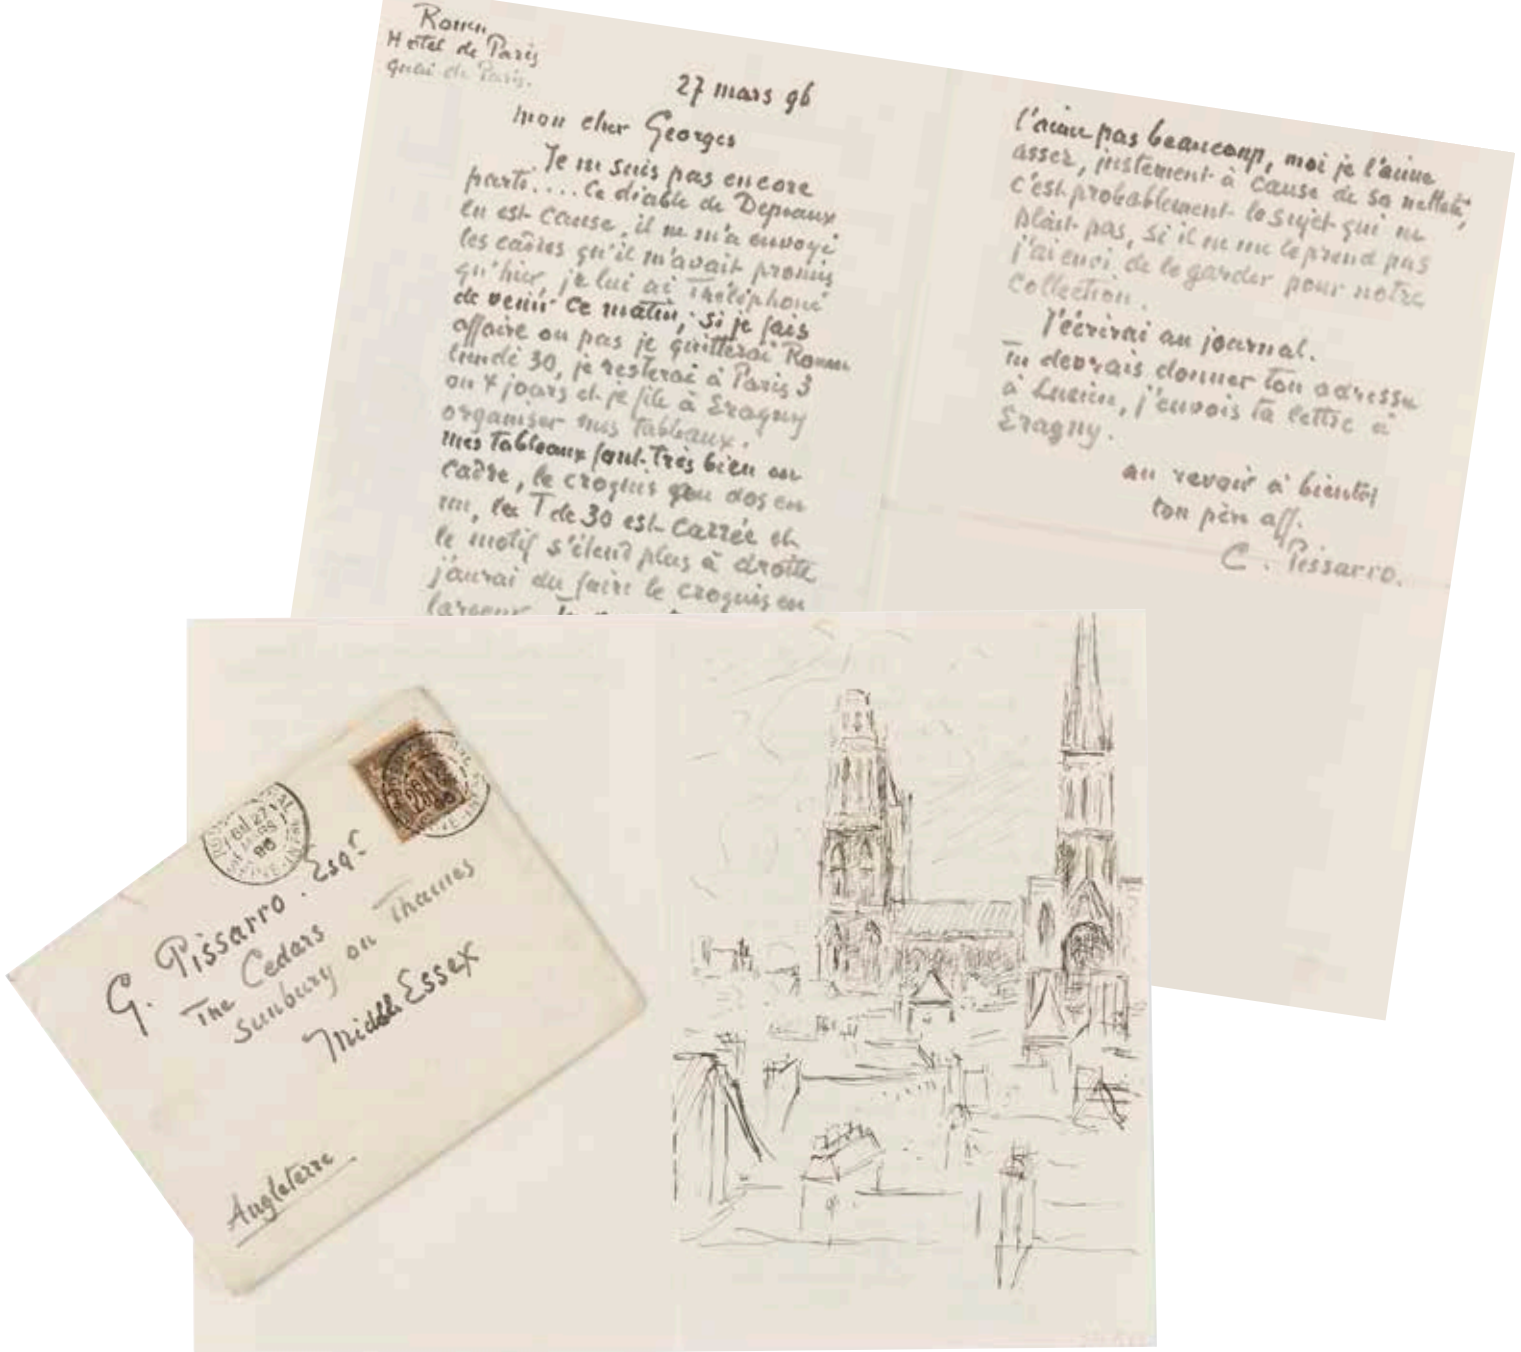 Rouen
Hotel de Paris
Quai de Paris.
27 mars 96
mon cher Georges
Je ne suis pas encore
parti.... Ce diable de Depeaux
en est cause, il ne m'a envoyé
les cadres qu'il m'avait promis
qu'hier, je lui ai Théléphoné
de venir ce matin, si je fais
affaire ou pas je quitterai Rouen
lundi 30, je resterai à Paris 3
ou 4 jours et je file à Eragny
organiser mes tableaux.
mes tableaux font très bien en
cadre, le croquis au dos en
un, la T de 30 est carrée et
le motif s'étend plus à droite
j'aurai du faire le croquis en
largeur
l'aime pas beaucoup, moi je l'aime
assez, justement à cause de sa netteté,
c'est probablement le sujet qui ne
plait pas, si il ne me le prend pas
j'ai envi de le garder pour notre
collection.
J'écrirai au journal.
Tu devrais donner ton adresse
à Lucien, j'envois ta lettre à
Eragny.
au revoir à bientôt
ton père aff.
C. Pissarro.
27
MARS
96
G. Pissarro. Esqr
The Cedars
Sunbury on Thames
MiddleEssex
Angleterre